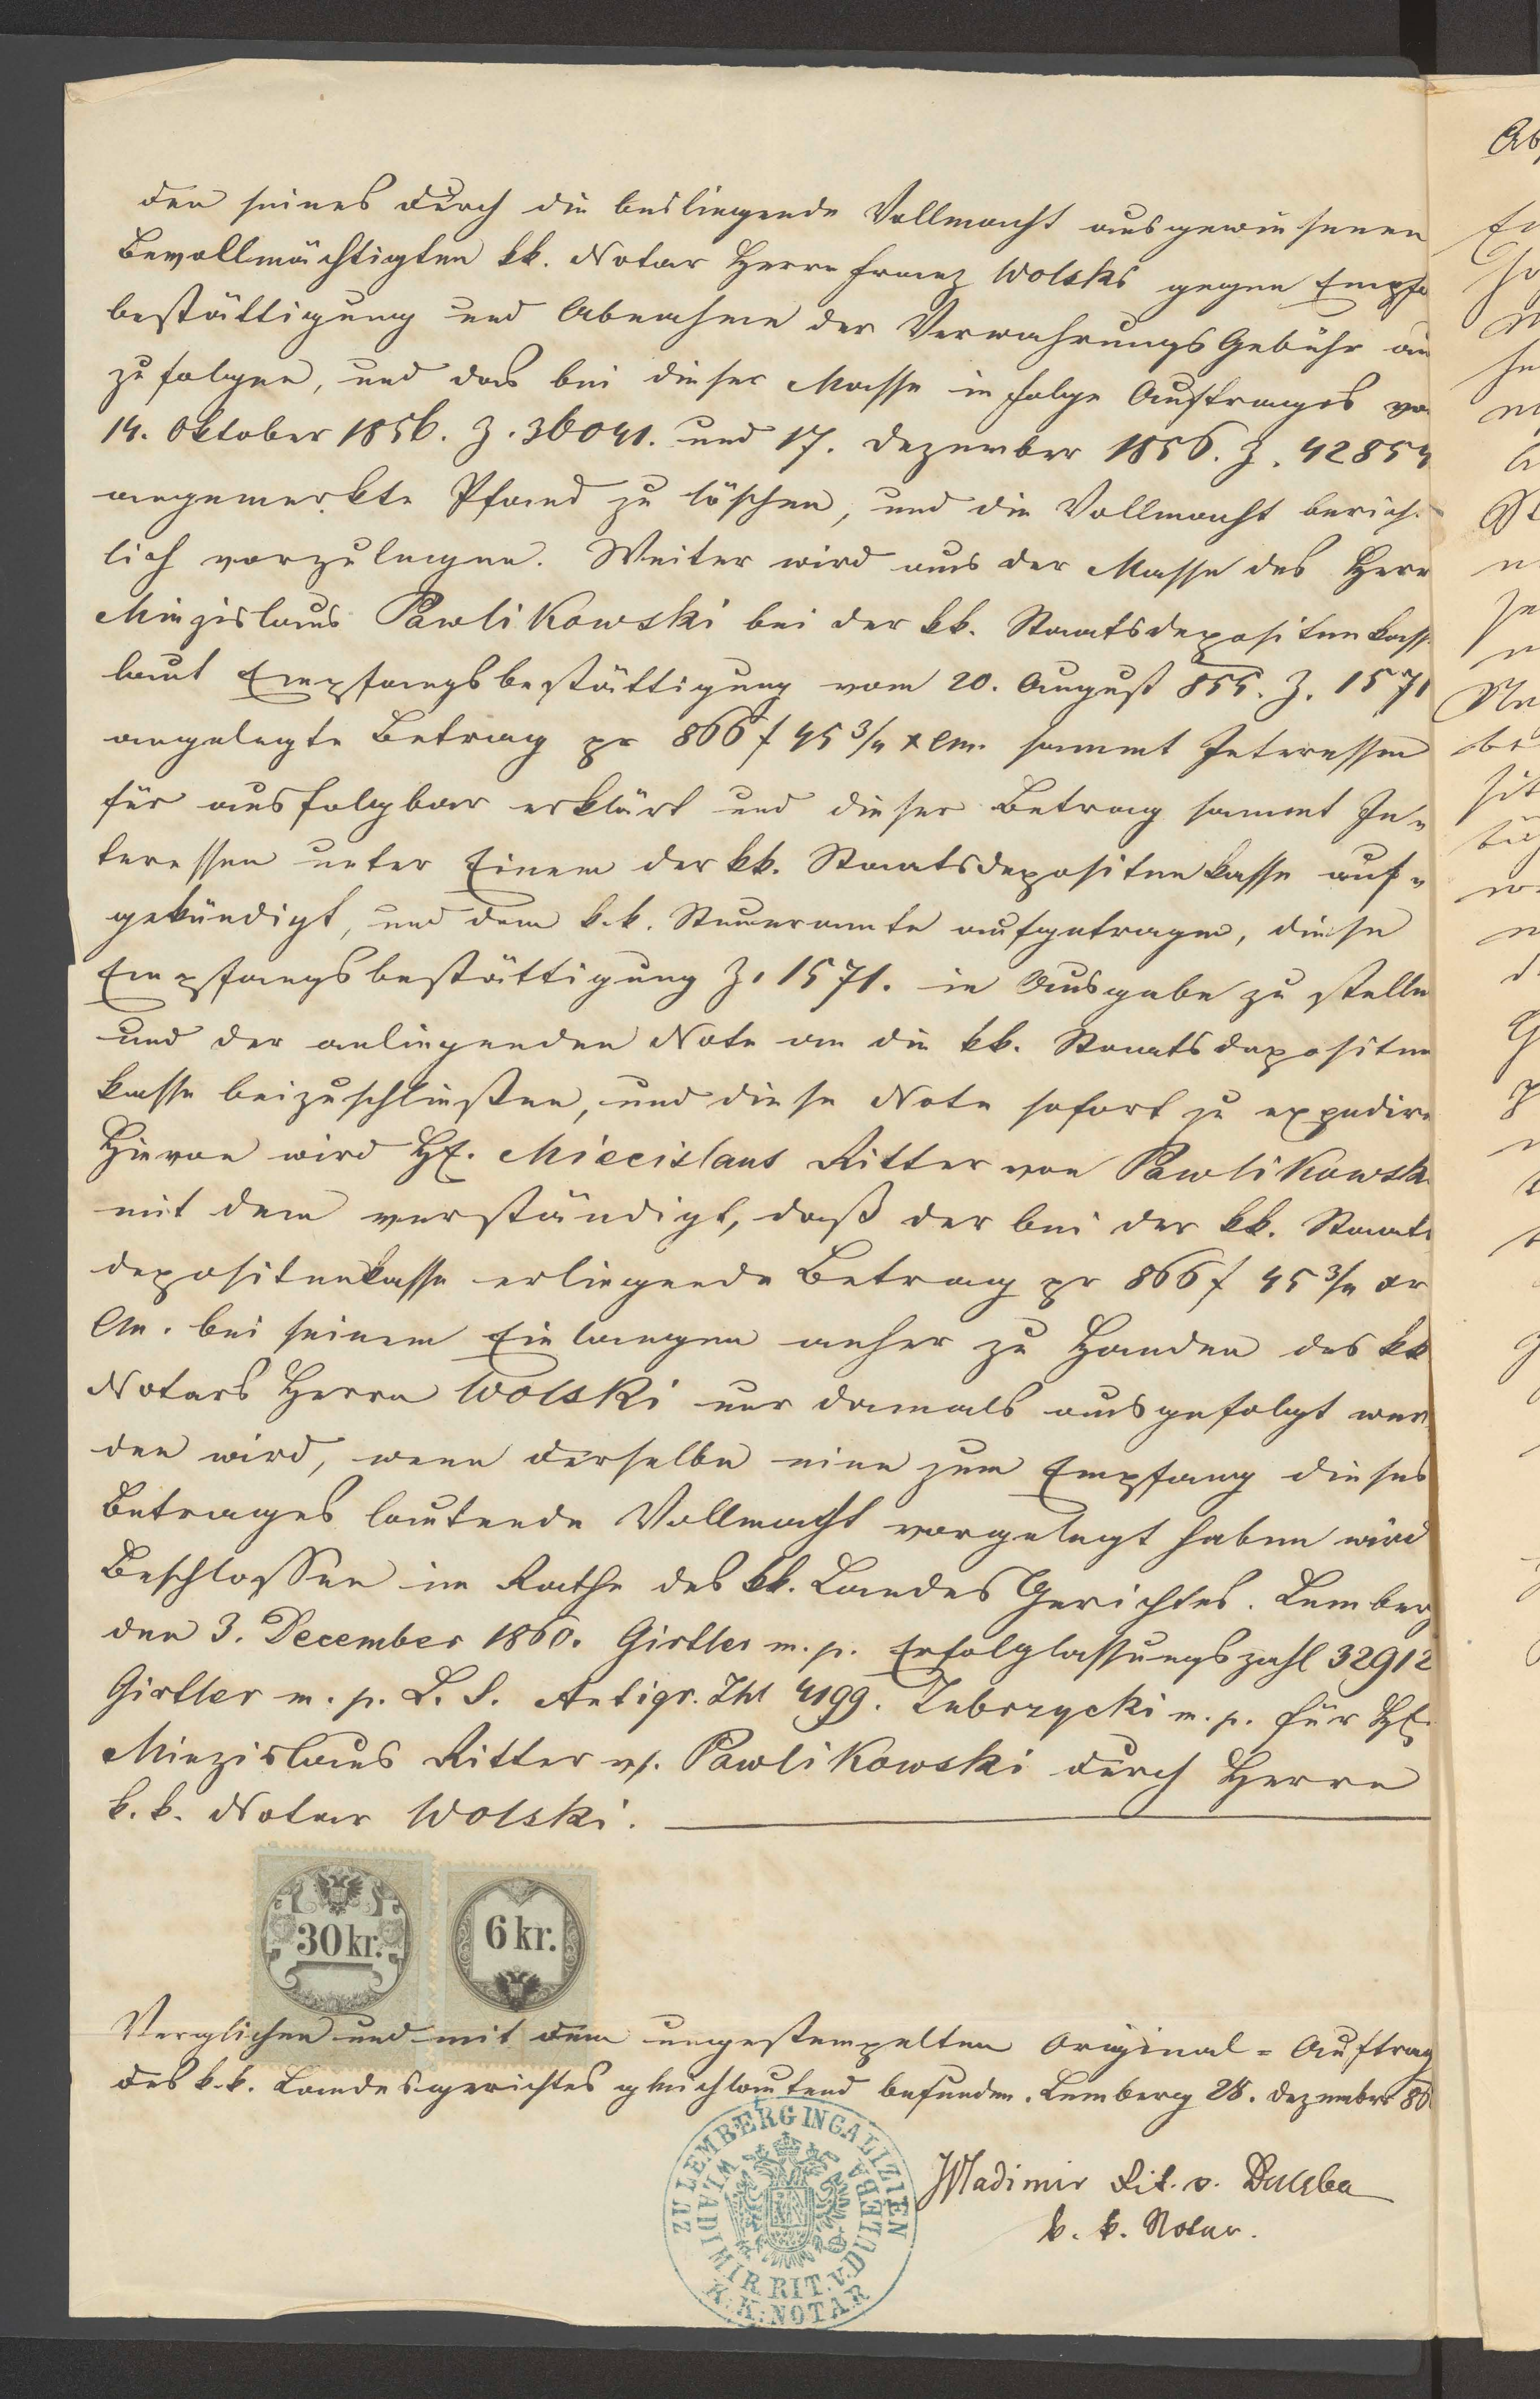 den seines durch die beiliegende Vollmacht ausgewiesenen
Bevollmächtigten kk. Notar Herrn Franz Wolski gegen Empfa
bestättigung und Abnahme der Verwahrungs Gebühr aus
zufolgen, und das bei dieser Masse in Folge Auftrages vo
14. Oktober 1856. Z. 36041. und 17. Dezember 1856. Z. 42854
angemerkte Pfand zu löschen, und die Vollmacht berich-
lich vorzulegen. Weiter wird aus der Masse des Herr
Miezislaus Pawlikowski bei der kk. Staatsdepositenkasse
laut Empfangsbestättigung vom 20. August 855. Z. 1571
angelegte Betrag pr 866 f 45 3/4 x Cm. sammt Interessen
für ausfolgbar erklärt und dieser Betrag sammt In-
teressen unter Einem der kk. Staatsdepositenkasse auf-
gekündigt, und dem k.k. Steueramte aufgetragen, diese
Empfangsbestättigung Z. 1571. in Ausgabe zu stellen
und der anliegenden Note an die kk. Staatsdepositen
kasse beizuschließen, und diese Note sofort zu expediren
Hievon wird H. Miecislaus Ritter von Pawlikowski
mit dem verständigt, daß der bei der kk. Staats
depositenkasse erliegende Betrag pr 866 f 45 3/4 xr
Cm. bei seinem Einlangen anher zu Handen des kk
Notars Herrn Wolski nur damals ausgefolgt wer
den wird, wenn derselbe eine zum Empfang dieses
Betrages lautende Vollmacht vorgelegt haben wird
Beschlossen im Rathe des kk. Landes Gerichtes. Lemberg
den 3. December 1860. Girtler m. p. Erfolglassungszahl 32912
Girtler m. p. L. S. Zhl 4199. Zubrzycki m. p. Für H.
Miezislaus Ritter v. Pawlikowski durch Herrn
k. k. Notar Wolski.
30 kr. 6 kr.
Verglichen und mit dem ungestempelten Original-Auftrag
des k.k. Landesgerichtes gleichlautend befunden. Lemberg 28. Dezember 86
Wladimir Rit. v. Duleba
k. k. Notar.
ZU LEMBERG IN GALIZIEN
WLADIMIR RIT. V. DULEBA
K. K. NOTAR